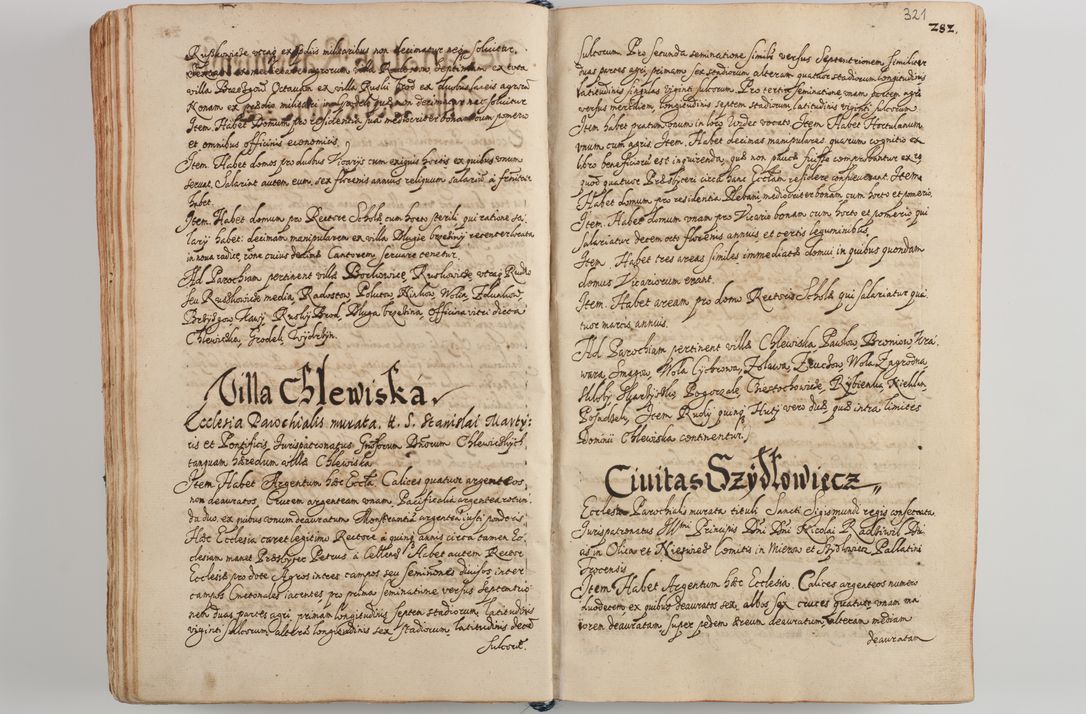 villa Brzegow Octavam ex villa Ruski Brod ex duobus laneis agrorũ
Nonam ex prædio militari
Item. Habet Domum pro residentia sua mediocriter bonam cum pomerio
et omnibus officinis economicis.
Item. Habet domos pro duobus Vicariis cum exiguis hortis ex quibus vnum
seruat. Salariat autem eum sex florenis annuis reliquum salariũ à
habet.
Item. Habet domum pro Rectore Scholæ cum horto sterili qui ratione sa,
larij habet decimam manipularem ex villa Dlugie brzeziny recenter locata
in noua radice, cuius Cantorem seruare tenetur.
Ad Parochiam pertinent villæ Borkowice, Ruskowice vtraq Rusko
seu Ruszkowice media, Radestow, Politow, Ninkow, Wola,
Brzezgow, Ruski Brod, Dluga brzezina, officina vitri dicta
Chlewiska, Grodek, Wydrzyn.
Villa Chlewiska.
Ecclesia Parochialis murata, tt. S. Stanislai Marty,
ris et Pontificis, Iurispatronatus Gnosorum Dnorum Chlewickych
tanquam hæredum villæ Chlewiska
Item. Habet Argentum hæc Eccla Calices quatuor argenteos,
non deauratos, Crucem argenteam vnam, Pacificalia argentea rotun,
da duo, ex quibus vnum deauratum Monstrantia argentea iusti ponderis
Hæc Ecclesia caret legitimo Rectore à quinq annis circa tamen Ec,
clesiam manet Presbyter Petrus à Habet autem Rector
Ecclesiæ pro dote Agros inter campos seu seminationes diuisos inter
campos Cmetonales iacentes pro prima seminatione versus septentrio,
nem duas partes agri primam longitudinis septem stadiorum, latitudinis
viginti sulcorum, alteram longitudinis sex stadiorum, latitudinis decẽ
sulcorũ.
321
282.
sulcorum. Pro secunda seminatione simili versus Septentrionem similiter
duas partes agri, primam sex stadiorum alteram quatuor stadiorum longitudinis
latitudinis singulas viginti sulcorum. Pro tertio seminatione vnam partem agri
versus meridiem longitudinis septem stadiorum, latitudinis viginti sulcorum
Item habet pratum vnum in loco vocato. Item Habet Hortulanum
vnum cum agris. Item. Habet decimas manipulares quarum cognitio ex
libro beneficiorũ est inquirenda, quæ non paucæ fuisse comprobantur ex eo
quod quatuor Presbyteri circa hanc Ecclam residere consueuerant. Item
Habet domum pro residentia Plebani mediocriter bonam cum horto et pomerio.
Item. Habet domum vnam pro Vicario bonam cum horto et pomerio qui
salariatur decem octo florenis annuis et certis leguminibus.
Item. Habet tres areas similes immediatæ domui in quibus quondam
domus Vicariorum erant.
Item. Habet aream pro domo Rectoris Scholæ qui salariatur qua,
tuor marcis annuis.
Ad Parochiam pertinent villæ Chlewiska, Pawlow, Broniow, Ura,
wara, Smagow, Wola Cyrkowa, Zalawa, Wola Zagrodna,
Pogorzale, Czestochowice, Rybienka, Niekłan,
Item Rudy quinq Huty vero duæ, quæ intra limites
Dominii Chlewiska continentur.
Ciuitas Szydłowiecz
Ecclesia Parochialis murata tituli Sancti Sigismundi regis consecrata
Iurispatronatus Illmi Principis Dni Dni Nicolai Radziwil Du,
cis in Olica et Nieswież Comitis in Mierow et Szydlowiecz Pallatini
Trocensis
Item Habet Argentum hæc Ecclesia, Calices argenteos numero
duodecem ex quibus deauratos sex, albos sex cruces quatuor vnam ma,
iorem deauratam super pedem æreum deauratum, alteram mediam
deauratam